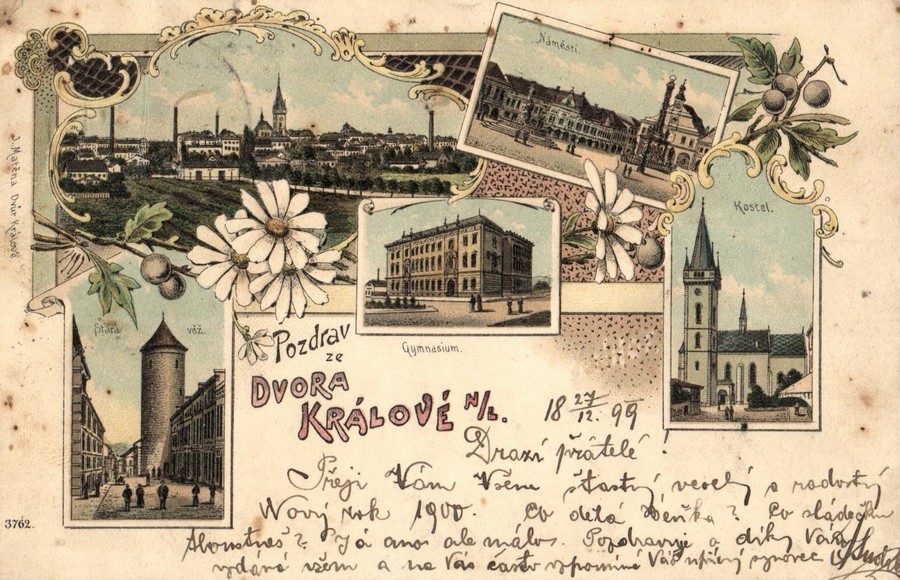 Náměstí.
Kostel.
J. Matěna Dvůr Králové
Stará věž.
Gymnasium.
Pozdrav
ze
DVORA
KRÁLOVÉ N/L.
18 27/12. 99
Drazí přátelé!
Přeji Vám Všem šťastný veselý a radostný
Nový rok 1900. Co dělá Co sládeček
Já ano ale málo. Pozdravuje a díky Vám
vzdává všem a na Vás často vzpomíná Váš upřímný
3762.